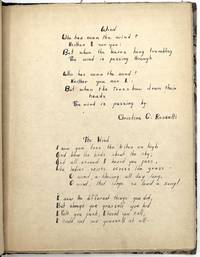 Wind
Who has seen the wind?
Neither I nor you:
But when the leaves hang trembling
The wind is passing through
Who has seen the wind?
Neither you nor I:
But when the trees bow down their
heads
The wind is passing by
Christina G. Rossetti
The Wind
I saw you toss the kites on high
And blow the birds about the sky;
And all around I heard you pass,
Like ladies' skirts across the grass-
O wind, a-blowing all day long,
O wind, that sings so loud a song!
I saw the different things you did,
But always you yourself you hid
I felt you push, I heard you call,
I could not see yourself at all-